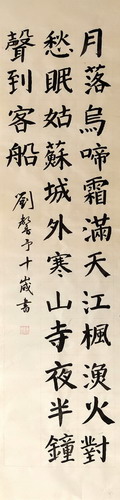 月落烏啼霜滿天江楓漁火對
愁眠姑蘇城外寒山寺夜半鐘
聲到客船
劉馨予十歲書